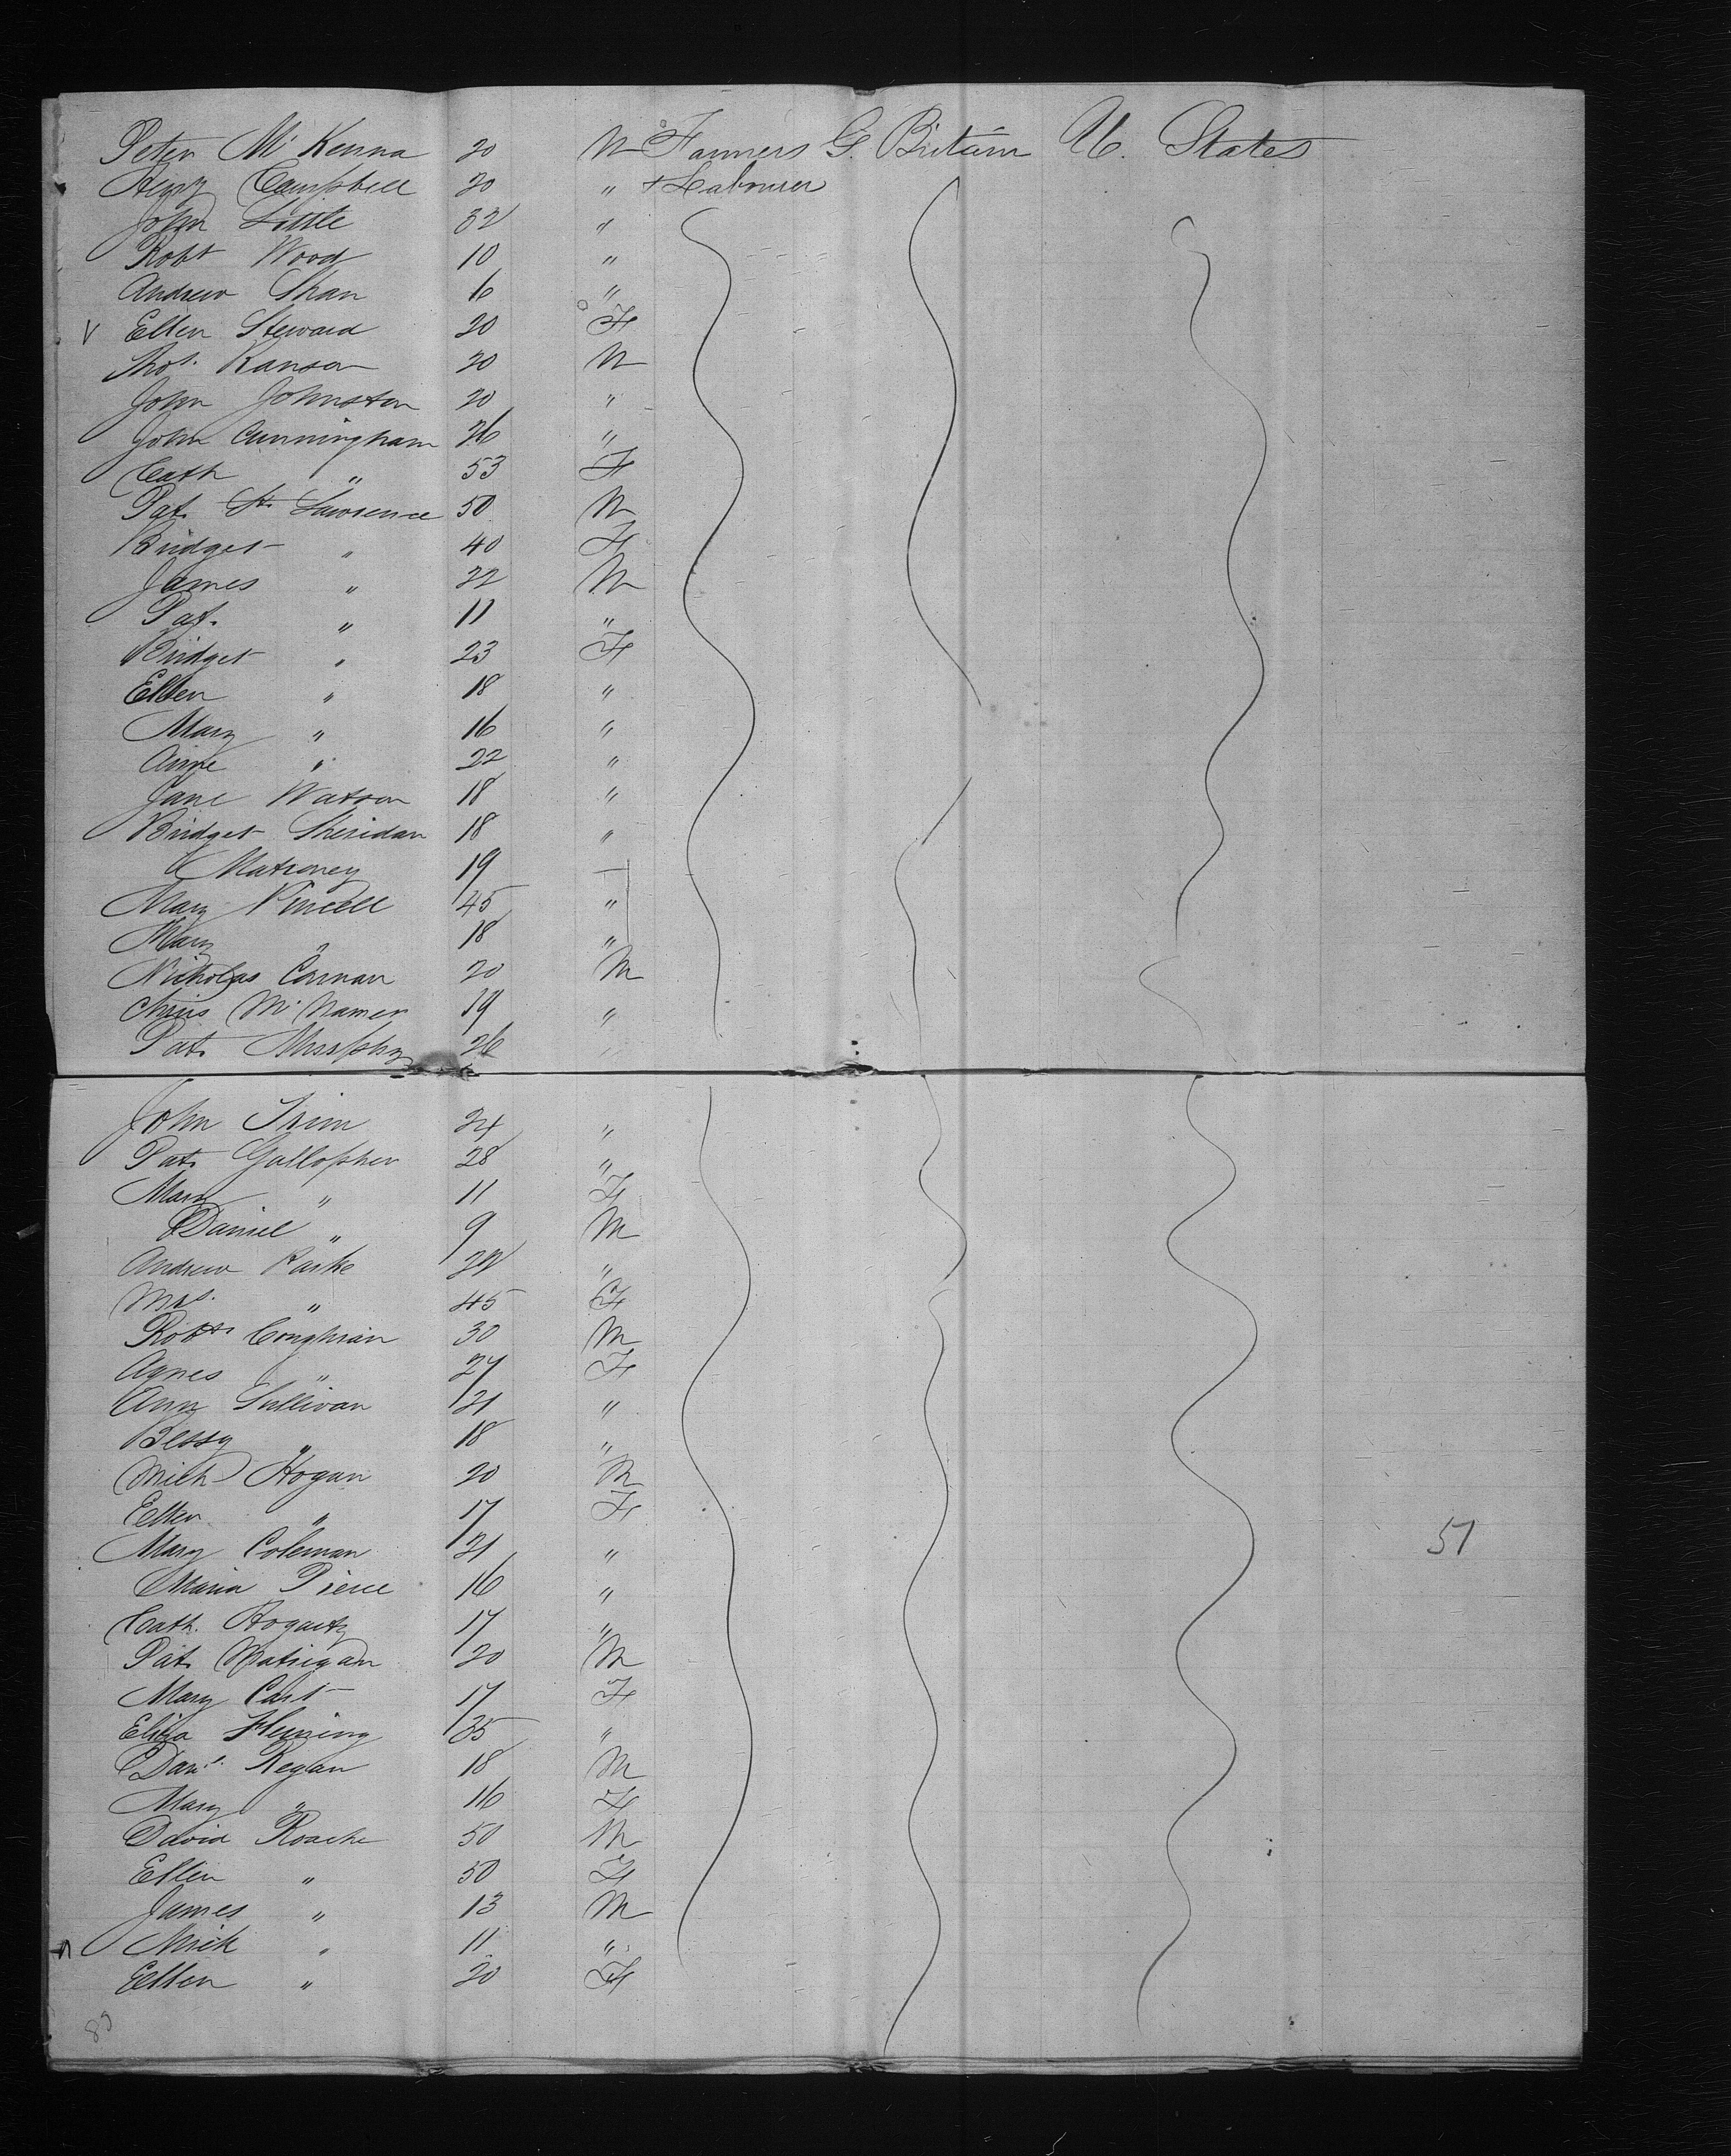 Peter McKenna 20 M Farmers G. Britain U. States
Henry Campbell 20 " + Labourer
John Little 32 "
Robt Wood 10 "
Andrew Shan 6 "
V Ellen Steward 20 F
Thos. Ranson 20 M
John Johnston 20 "
John Cunningham 26 "
Cath " 53 F
Pat. St. Lawrence 50 M
Bridget " 40 F
James " 22 M
Pat. " 11 "
Bridget " 23 F
Ellen " 18 "
Mary " 16 "
Anne " 22 "
Jane Watson 18 "
Bridget Sheridan 18 "
Matroney 19
Mary Pincell 45 "
Mary " 18 "
Nicholas Cornan 20 M
Chris McNamer 19 "
Pat. Murphy 26 "
John Trim 24 "
Pat. Gallopher 28 "
Mary " 11 F
Daniel " 9 M
Andrew Raske 22 "
Mrs. " 45 F
Robt. Coughran 30 M
Agnes " 27 F
Ann Sullivan 21 "
Bessy " 18 "
Mich Hogan 20 M
Ellen " 17 F
Mary Coleman 21 "
51
Maria Pierce 16 "
Cath. Hogarty 17 "
Pat. Matrigan 20 M
Mary Cast 17 F
Eliza Fleming 35 "
Danl. Regan 18 M
Mary " 16 F
David Roache 50 M
Ellen " 50 F
James " 13 M
Mick " 11 "
Ellen " 20 F